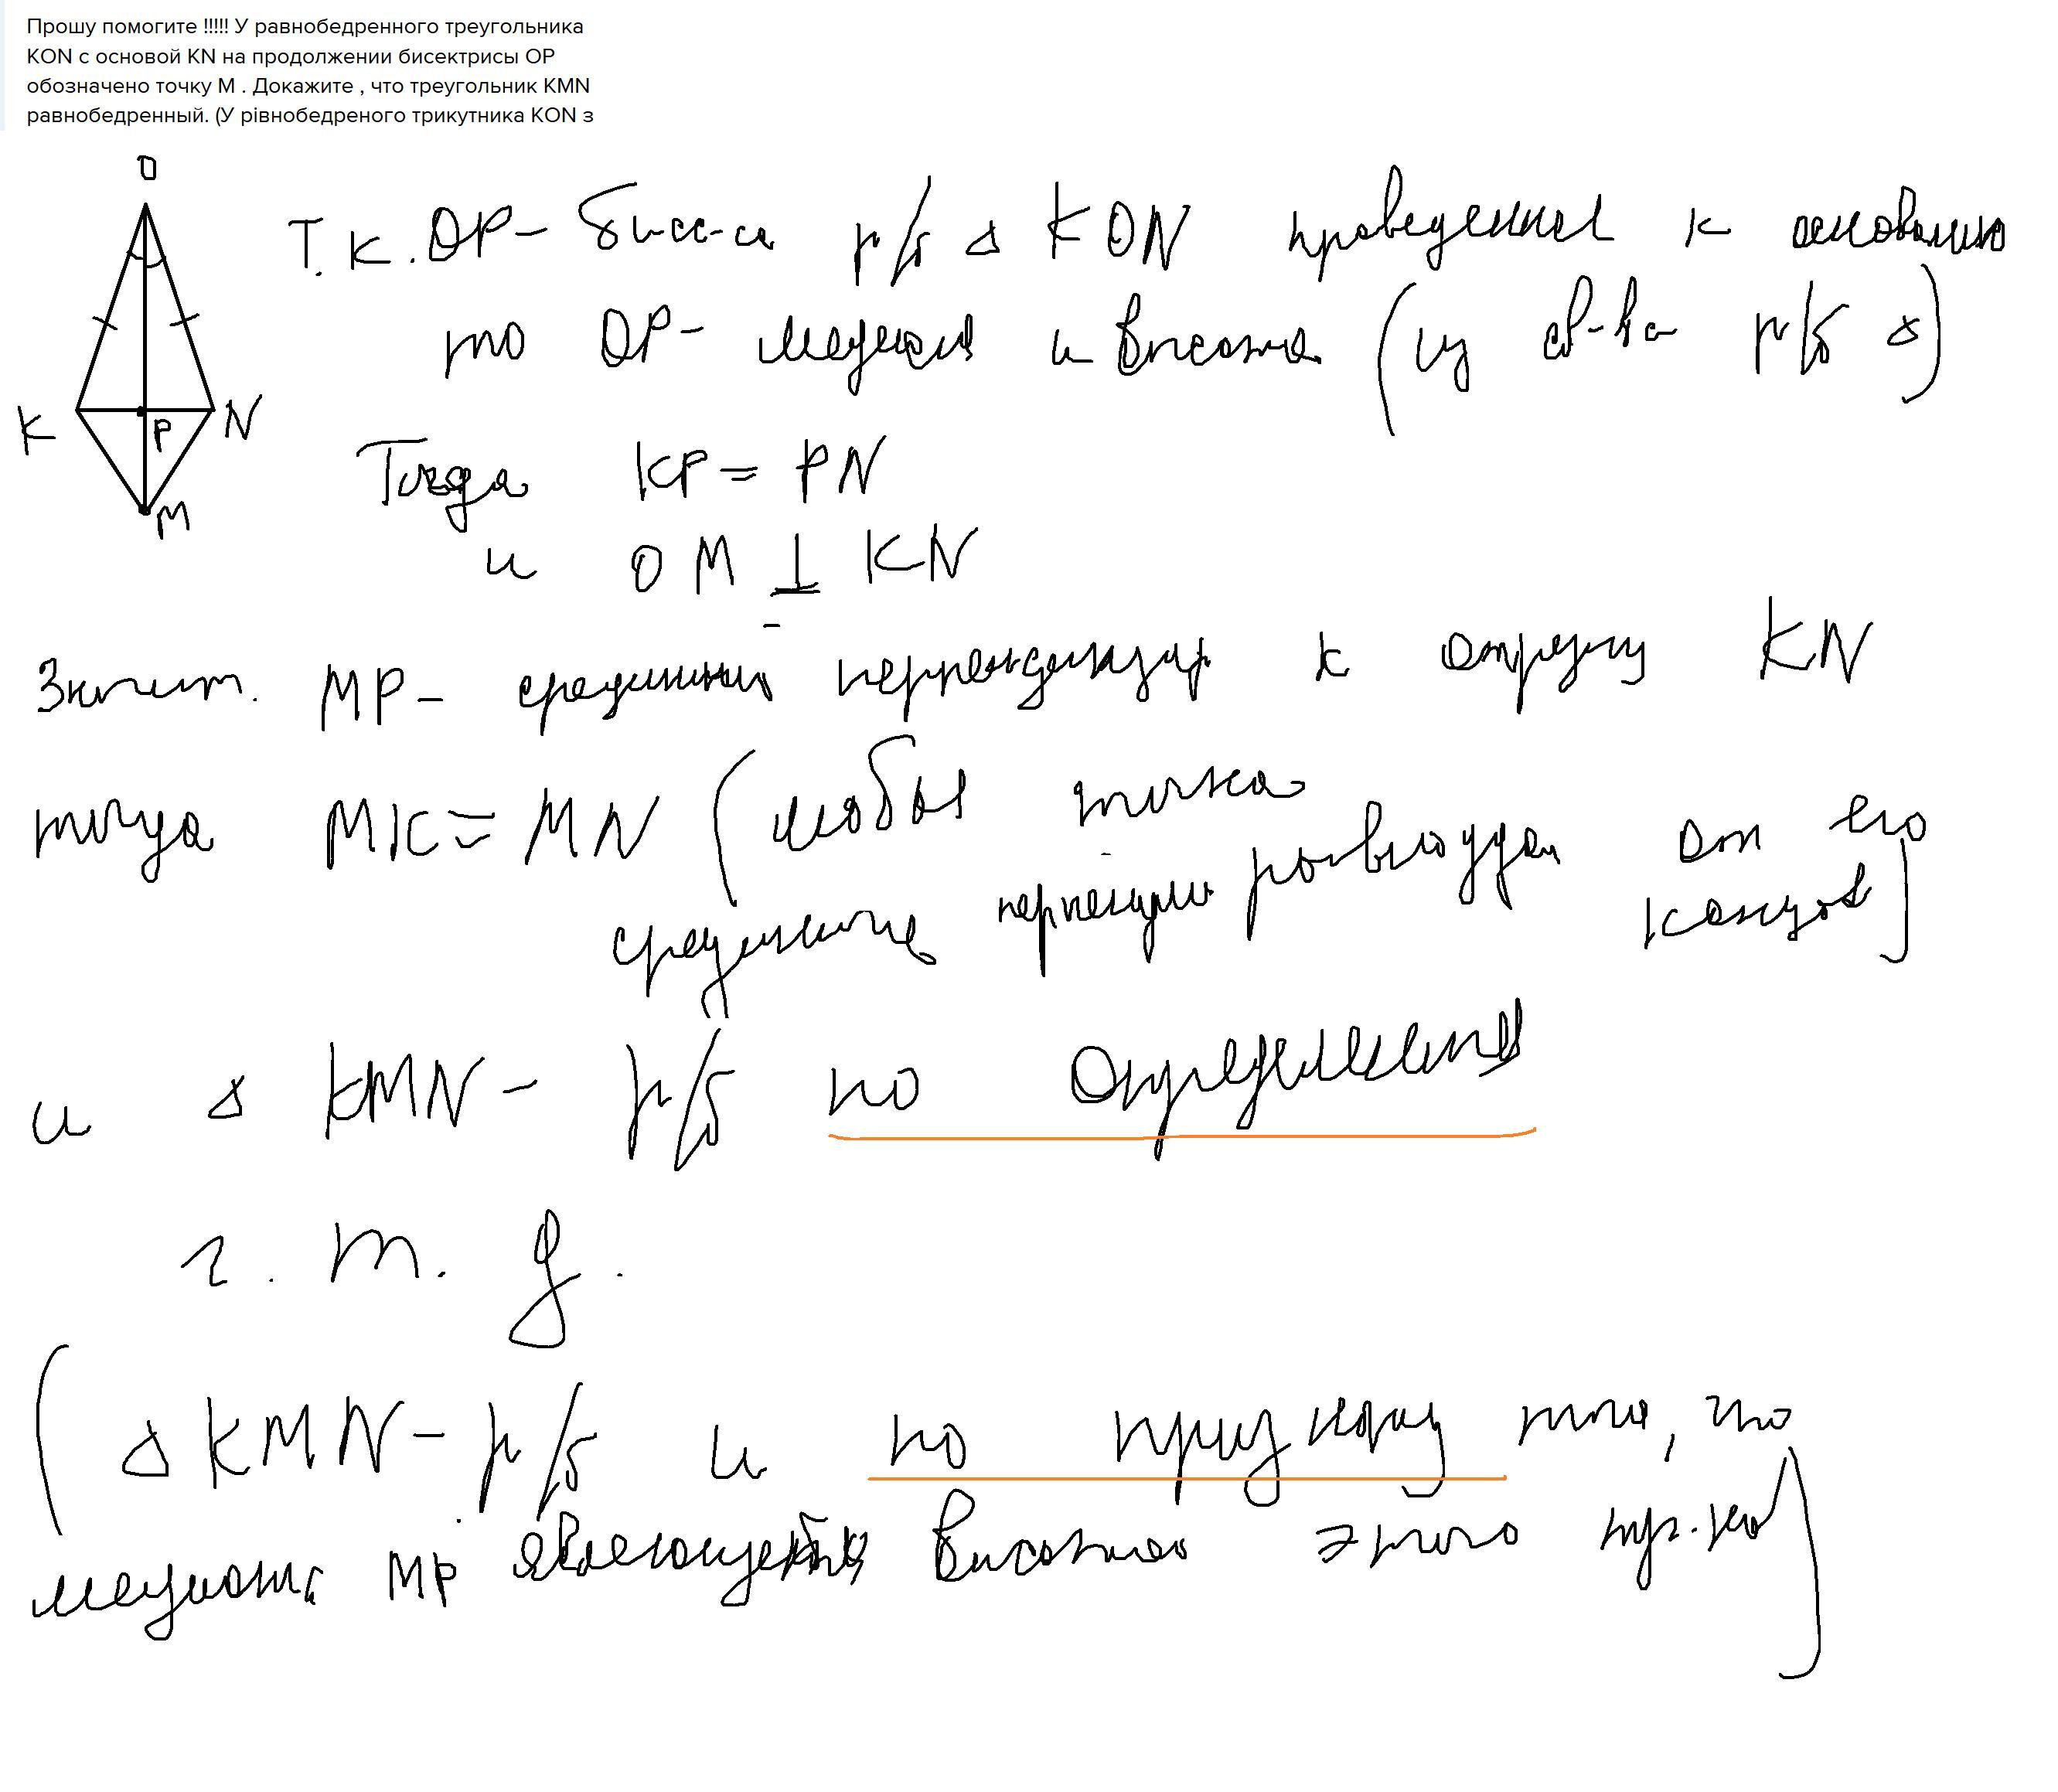 Прошу помогите !!!!! У равнобедренного треугольника
KON с основой KN на продолжении бисектрисы OP
обозначено точку М . Докажите , что треугольник KMN
равнобедренный. (У рівнобедреного трикутника KON з
O
K
P
N
M
Т.к. OP- бисс-са р/б Δ KON проведенная к основанию
то OP- медиана и высота (из св-ва р/б Δ)
Тогда KP = PN
и OM ⊥ KN
Значит. MP- срединный перпендикуляр к отрезку KN
тогда MK = MN (любая точка
срединного перпендик равноудал от его
концов)
и Δ KMN - р/б по определению
ч. т. д.
(Δ KMN - р/б и по признаку того, что
медиана MP являющейся высотой этого тр-ка)